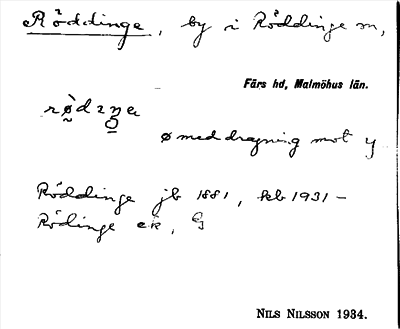 Röddinge, by i Röddinge sn,
Färs hd, Malmöhus län.
rø̀dıŋa
ø med dragning mot y
Röddinge jb 1881, kb 1931 –
Rödinge ek,
NILS NILSSON 1934.